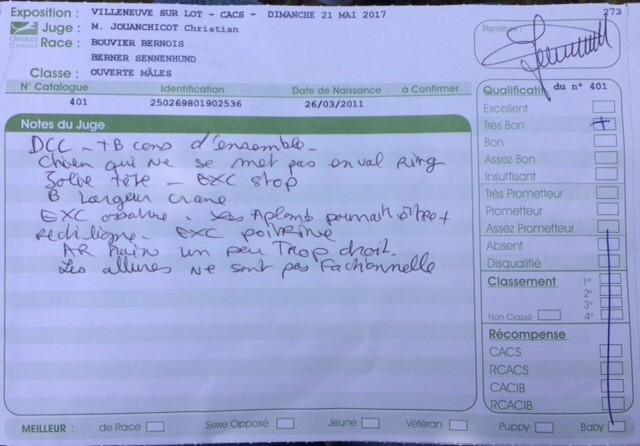 Exposition : VILLENEUVE SUR LOT - CACS - DIMANCHE 21 MAI 2017
273
Juge : M. JOUANCHICOT Christian
Race : BOUVIER BERNOIS
BERNER SENNENHUND
CENTRALE CANINE
Classe : OUVERTE MÂLES
Signature :
N° Catalogue Identification Date de Naissance à Confirmer
401 250269801902536 26/03/2011
Notes du Juge
DCC - TB cons d'ensemble -
Chien qui ne se met pas en val Ring
Jolie tête - EXC stop
B Largeur crane
EXC ossature - Les Aplomb pourrait être +
rectiligne - EXC poitrine
AR main un peu Trop droit.
Les allures ne sont pas Factionnelle
Qualificatif du n° 401
Excellent
Très Bon +
Bon
Assez Bon
Insuffisant
Très Prometteur
Prometteur
Assez Prometteur
Absent
Disqualifié
Classement 1er
2e
3e
Non Classé 4e
Récompense
CACS
RCACS
CACIB
RCACIB
MEILLEUR : de Race Sexe Opposé Jeune Vétéran Puppy Baby